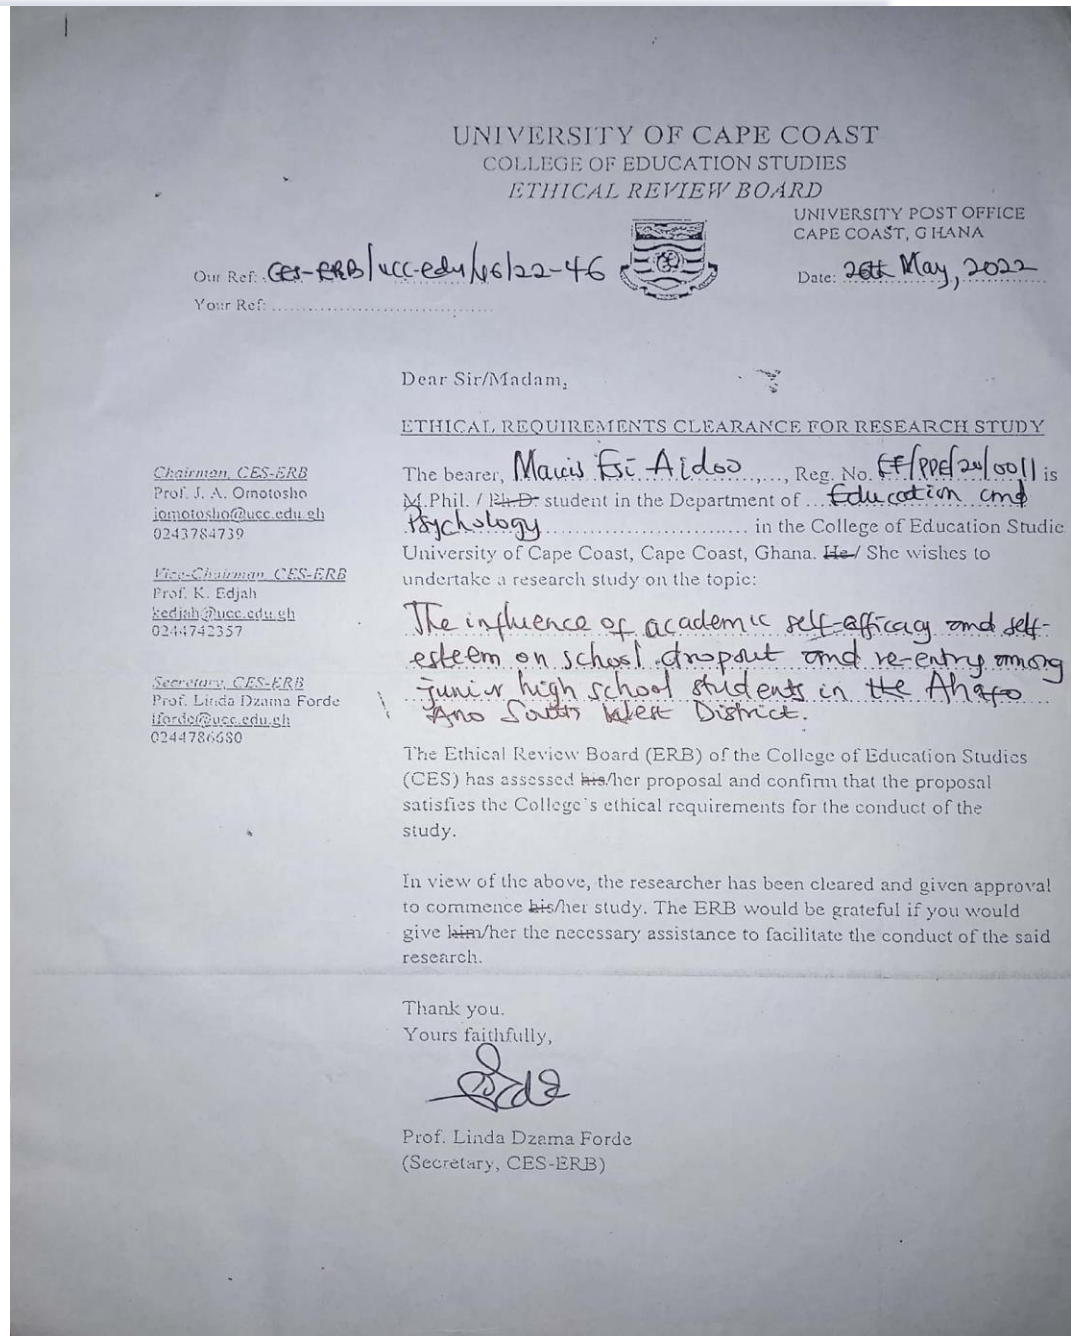 UNIVERSITY OF CAPE COAST
COLLEGE OF EDUCATION STUDIES
ETHICAL REVIEW BOARD
UNIVERSITY POST OFFICE
CAPE COAST, GHANA
Our Ref: CES-ERB/ucc-edu/V6/22-46
Date: 26th May, 2022
Your Ref:
Dear Sir/Madam,
ETHICAL REQUIREMENTS CLEARANCE FOR RESEARCH STUDY
Chairman, CES-ERB
Prof. J. A. Omotosho
jomotosho@ucc.edu.gh
0243784739
Vice-Chairman, CES-ERB
Prof. K. Edjah
kedjah@ucc.edu.gh
0244742357
Secretary, CES-ERB
Prof. Linda Dzama Forde
lforde@ucc.edu.gh
0244786680
The bearer, Mavis Esi Aidoo, Reg. No. EF/PPE/20/0011 is
M.Phil. / Ph.D. student in the Department of Education and
Psychology in the College of Education Studie
University of Cape Coast, Cape Coast, Ghana. He/ She wishes to
undertake a research study on the topic:
The influence of academic self-efficacy and self-
esteem on school dropout and re-entry among
junior high school students in the Ahafo
Ano South West District.
The Ethical Review Board (ERB) of the College of Education Studies
(CES) has assessed his/her proposal and confirm that the proposal
satisfies the College's ethical requirements for the conduct of the
study.
In view of the above, the researcher has been cleared and given approval
to commence his/her study. The ERB would be grateful if you would
give him/her the necessary assistance to facilitate the conduct of the said
research.
Thank you.
Yours faithfully,
Prof. Linda Dzama Forde
(Secretary, CES-ERB)